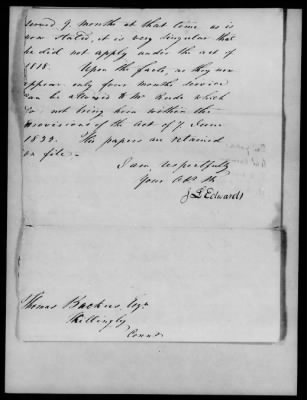 served 9. months at that time as is
now stated, it is very singular that
he did not apply under the act of
1818. Upon the facts, as they now
appear only four months service
can be allowed to Mr. which
do not bring him within the
provisions of the act of 7. June
1832. The papers are retained
on file.
I am respectfully
Your Obt. St.
J L Edwards
Thomas Backus Esqr.
Killingly
Connt.